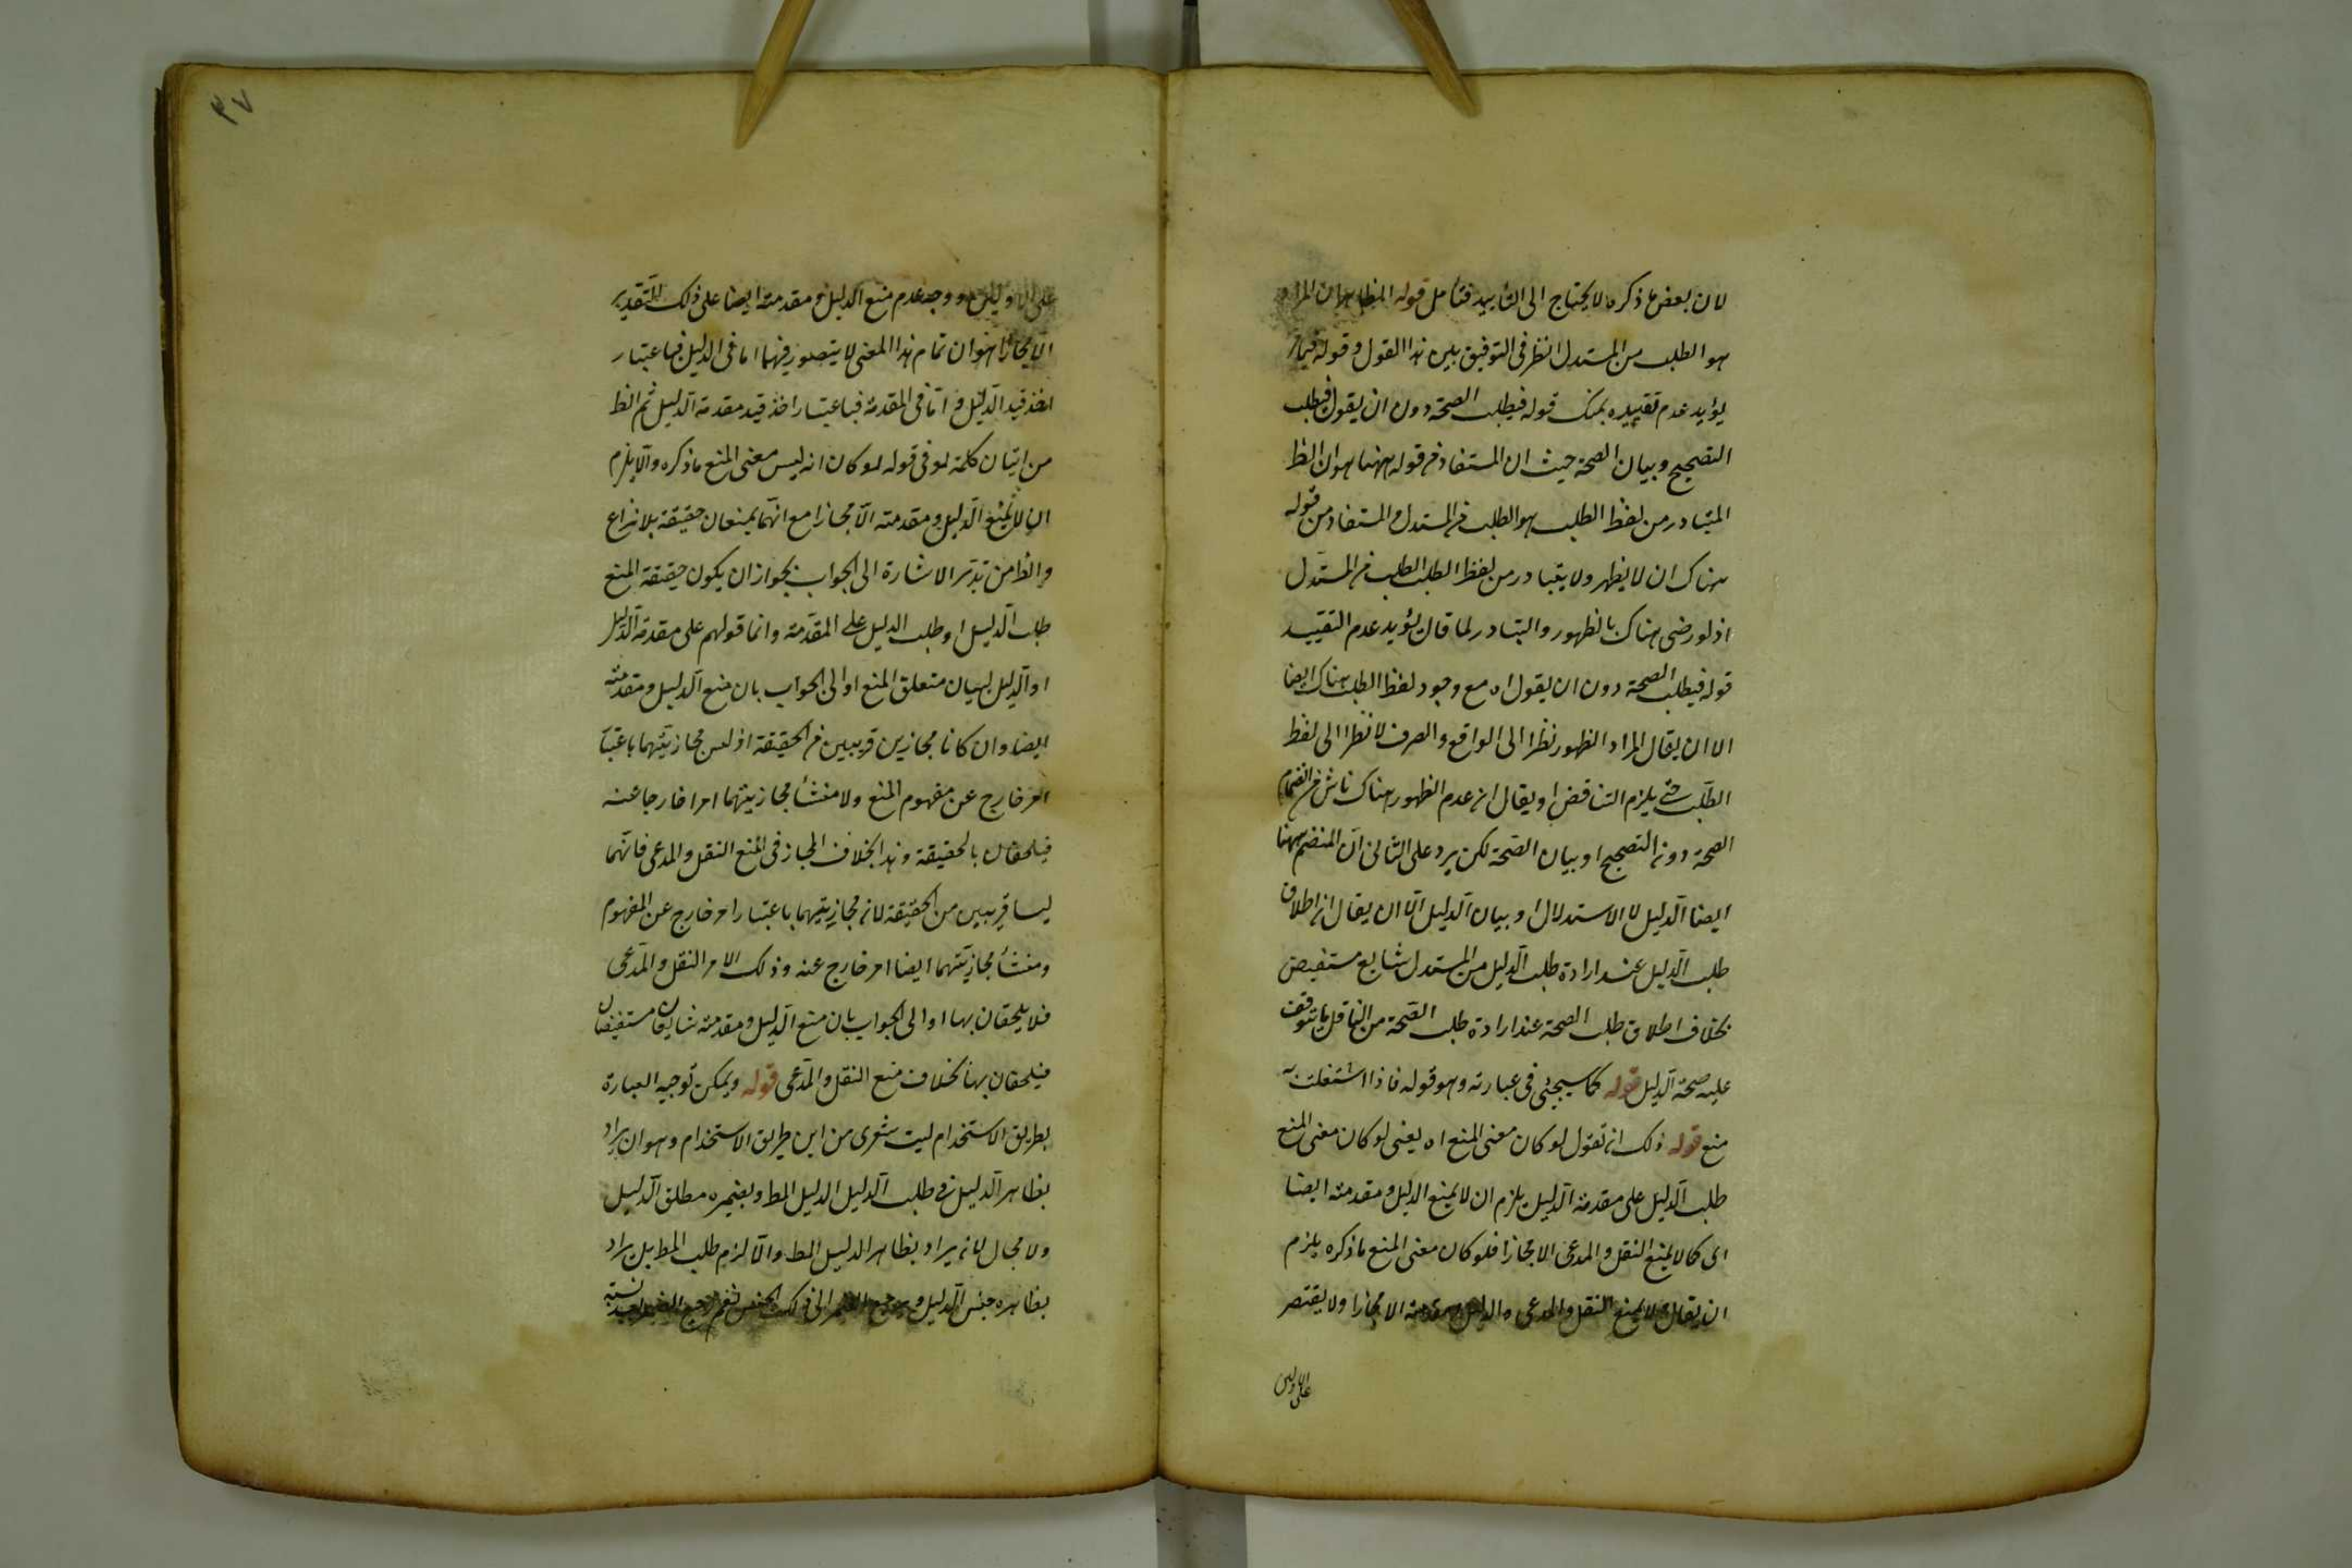 لان بعض ما ذكره لا يحتاج الى التأييد فتأمل قوله الظاهر ان المراد
هو الطلب من المستدل انظر فى التوفيق بين هذا القول وقوله فيما مر
يؤيد عدم تقييده بمنك قوله فيطلب الصحة دون ان يقول فيطلب
التصحيح وبيان الصحة حيث ان المستفاد من قوله ههنا هو ان الظ
المتبادر من لفظ الطلب هو الطلب من المستدل والمستفاد من قوله
هناك ان لا يظهر ولا يتبادر من لفظ الطلب الطلب من المستدل
اذ لو رضى هناك بالظهور والتبادر لما قال يؤيد عدم التقييد
قوله فيطلب الصحة دون ان يقول اه مع وجود لفظ الطلب هناك ايضا
الا ان يقال المراد الظهور نظرا الى الواقع والعرف لا نظرا الى لفظ
الطلب حتى يلزم التناقض او يقال ان عدم الظهور هناك ناش من انضمام
الصحة دون التصحيح او بيان الصحة لكن يرد على الثانى ان المنضم ههنا
ايضا الدليل لا الاستدلال او بيان الدليل الا ان يقال ان اطلاق
طلب الدليل عند ارادة طلب الدليل من المستدل شايع مستفيض
بخلاف اطلاق طلب الصحة عند ارادة طلب الصحة من الناقل ما يتوقف
عليه صحة الدليل قوله كما سيجئ فى عبارته وهو قوله فاذا اشتغلت به
منع قوله ذلك ان تقول لو كان معنى المنع اه يعنى لو كان معنى المنع
طلب الدليل على مقدمة الدليل يلزم ان لا يمنع الدليل ومقدمته ايضا
اى كما لا يمنع النقل والمدعى الا مجازا فلو كان معنى المنع ما ذكره يلزم
ان يقال لا يمنع النقل والمدعى والدليل ومقدمته الا مجازا ولا يقتصر
على الاولين
٣٧
على الاولين ووجه عدم منع الدليل ومقدمته ايضا على ذلك التقدير
الا مجازا هو ان تمام هذا المعنى لا يتصور فيهما اما فى الدليل فباعتبار
اخذ قيد الدليل واما فى المقدمة فباعتبار اخذ قيد مقدمة الدليل ثم الظ
من اتيان كلمة لو فى قوله لو كان انه ليس معنى المنع ما ذكره والا يلزم
ان لا يمنع الدليل ومقدمته الا مجازا مع انهما يمنعان حقيقة بلا نزاع
والظ من تدبر الاشارة الى الجواب بجواز ان يكون حقيقة المنع
طلب الدليل او طلب الدليل على المقدمة وانما قولهم على مقدمة الدليل
او الدليل لبيان متعلق المنع او الى الجواب بان منع الدليل ومقدمته
ايضا وان كانا مجازين قريبين من الحقيقة اذ ليس مجازيتهما باعتبار
امر خارج عن مفهوم المنع ولا منشأ مجازيتهما امرا خارجا عنه
فيلحقان بالحقيقة وهذا بخلاف المجاز فى المنع النقل والمدعى فانهما
ليسا قريبين من الحقيقة لان مجازيتهما باعتبار امر خارج عن المفهوم
ومنشأ مجازيتهما ايضا امر خارج عنه وذلك الامر النقل والمدعى
فلا يلحقان بها او الى الجواب بان منع الدليل ومقدمته شايعان مستفيضان
فيلحقان بها بخلاف منع النقل والمدعى قوله ويمكن توجيه العبارة
بطريق الاستخدام ليت شعرى من اين طريق الاستخدام وهو ان يراد
بظاهر الدليل فى طلب الدليل الدليل المط وبضميره مطلق الدليل
ولا مجال لان يراد بظاهر الدليل المط والا لزم طلب المط بل يراد
بظاهره جنس الدليل و الى ذلك الجنس نعم